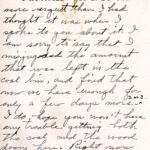 more urgent than I had
thought it was when I
spoke to you about it. I
am sorry to say that I
misjudged the amount
that was left in the
coal bin, and find that
now we have enough for
only a few days more.
I do hope you won't have
any trouble getting both
the coal and the wood
down here. Right now